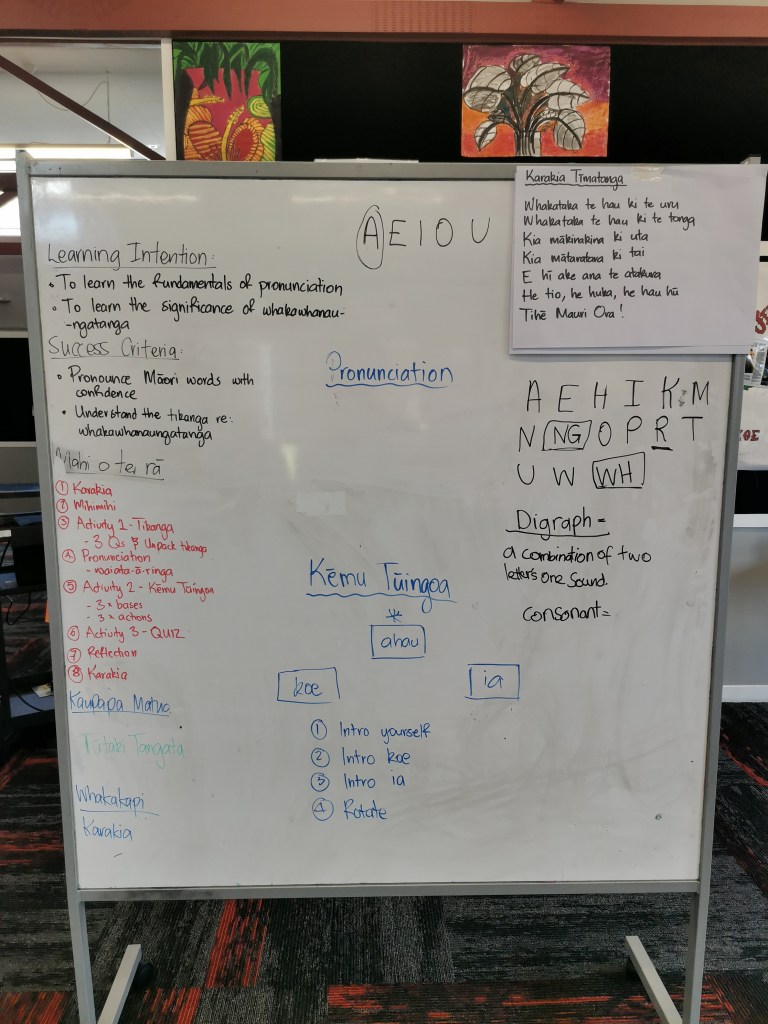 Karakia Tīmatanga
Whakataka te hau ki te uru
Whakataka te hau ki te tonga
Kia mākinakina ki uta
Kia mātaratara ki tai
E hī ake ana te atakura
He tio, he huka, he hau hū
Tihē Mauri Ora!
A E I O U
Learning Intention:
• To learn the fundamentals of pronunciation
• To learn the significance of whakawhanau-
-ngatanga
Success Criteria:
• Pronounce Māori words with
confidence
• Understand the tikanga re:
whakawhanaungatanga
Mahi o te rā
① Karakia
② Mihimihi
③ Activity 1 - Tikanga
- 3 Qs & Unpack tikanga
④ Pronunciation
- waiata-ā-ringa
⑤ Activity 2 - Kēmu Tūingoa
- 3 x bases
- 3 x actions
⑥ Activity 3 - QUIZ
⑦ Reflection
⑧ Karakia
Kaupapa Matua
Tūtaki Tangata
Whakakapi
Karakia
Pronunciation
Kēmu Tūingoa
*
ahau
koe
ia
① Intro yourself
② Intro koe
③ Intro ia
④ Rotate
A E H I K M
N NG O P R T
U W WH
Digraph =
a combination of two
letters one sound.
consonant =